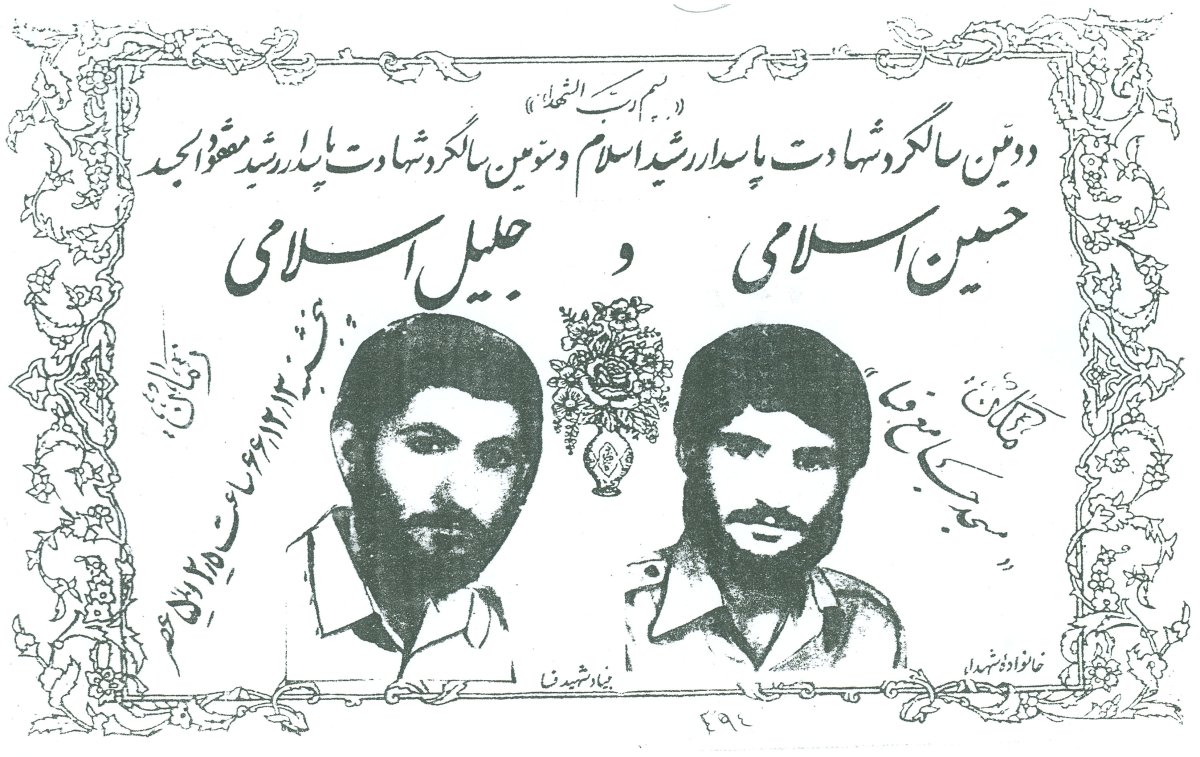 «بسم رب الشهداء»
دومین سالگرد شهادت پاسدار رشید اسلام و سومین سالگرد شهادت پاسدار رشید مفقود الجسد
حسین اسلامی و جلیل اسلامی
مکان:
«مسجد جامع فسا»
زمان:
پنجشنبه ۶۶/۱۲/۱۳ ساعت ۲/۵ الی عصر
خانواده شهداء
بنیاد شهید فسا
۴۹۴